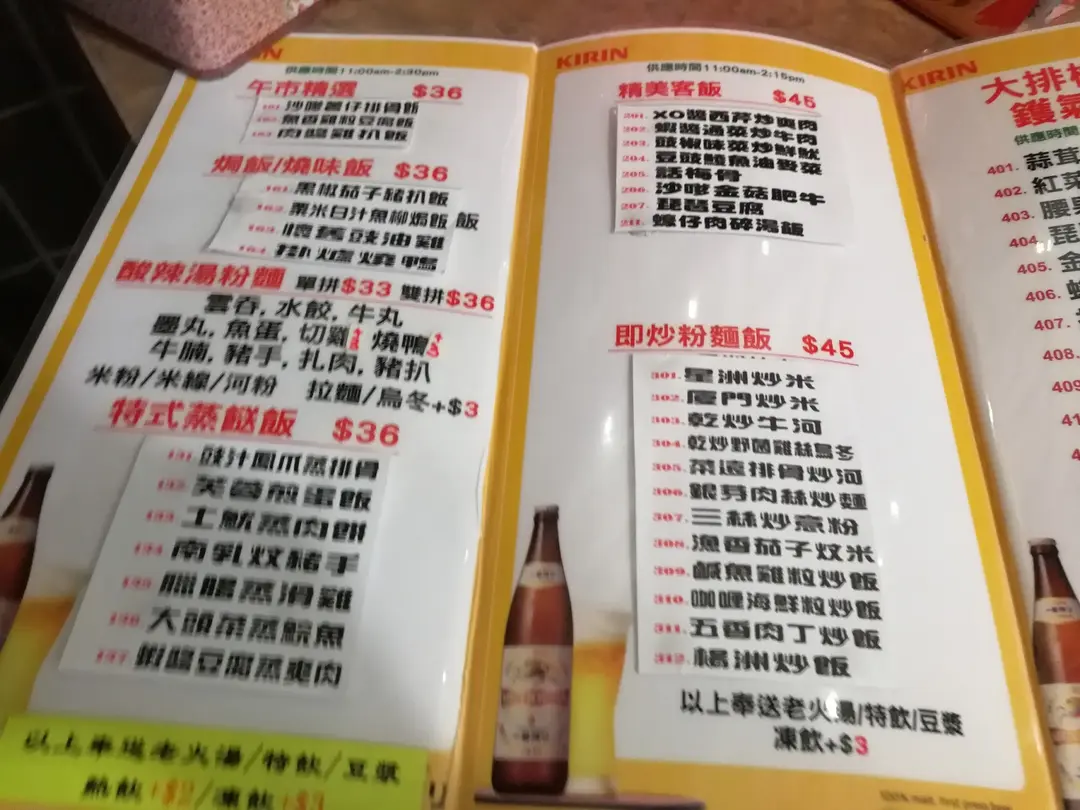 KIRIN
供應時間11:00am-2:30pm
午市精選 $36
沙嗲薯仔排骨飯
魚香雞粒豆腐飯
肉醬雞扒飯
焗飯/燒味飯 $36
161.黑椒茄子豬扒飯
162.粟米白汁魚柳焗飯 飯
163.懷舊豉油雞
164.掛爐燒鴨
酸辣湯粉麵 單拼$33 雙拼$36
雲吞, 水餃, 牛丸
墨丸, 魚蛋, 切雞 燒鴨
牛腩, 豬手, 扎肉, 豬扒
米粉/米線/河粉 拉麵/烏冬+$3
特式蒸餸飯 $36
131.豉汁鳳爪蒸排骨
132.芙蓉煎蛋飯
133.土魷蒸肉餅
134.南乳炆豬手
135.臘腸蒸滑雞
136.大頭菜蒸鯇魚
137.蝦醬豆腐蒸爽肉
以上奉送老火湯/特飲/豆漿
熱飲+$2/凍飲+$3
KIRIN
供應時間11:00am-2:15pm
精美客飯 $45
201.XO醬西芹炒爽肉
202.蝦醬通菜炒牛肉
203.豉椒味菜炒鮮魷
204.豆豉鯪魚油麥菜
205.話梅骨
206.沙嗲金菇肥牛
207.琵琶豆腐
211.蠔仔肉碎湯飯
即炒粉麵飯 $45
301.星洲炒米
302.廈門炒米
303.乾炒牛河
304.乾炒野菌雞絲烏冬
305.菜遠排骨炒河
306.銀芽肉絲炒麵
307.三絲炒意粉
308.漁香茄子炆米
309.鹹魚雞粒炒飯
310.咖喱海鮮粒炒飯
311.五香肉丁炒飯
312.楊洲炒飯
以上奉送老火湯/特飲/豆漿
凍飲+$3
KIRIN
大排
鑊氣
供應時間
401.蒜茸
402.紅菜
403.腰果
404.琵
405.金
406.
407.
408.
409
41
4